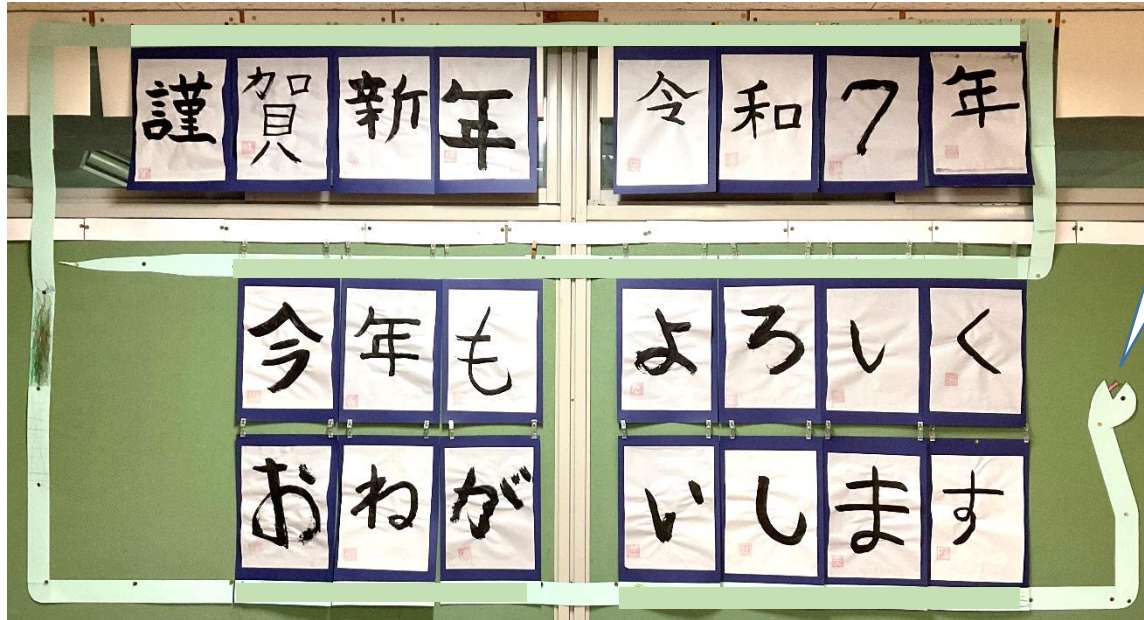 謹賀新年 令和7年
今年も よろしく
おねがいします